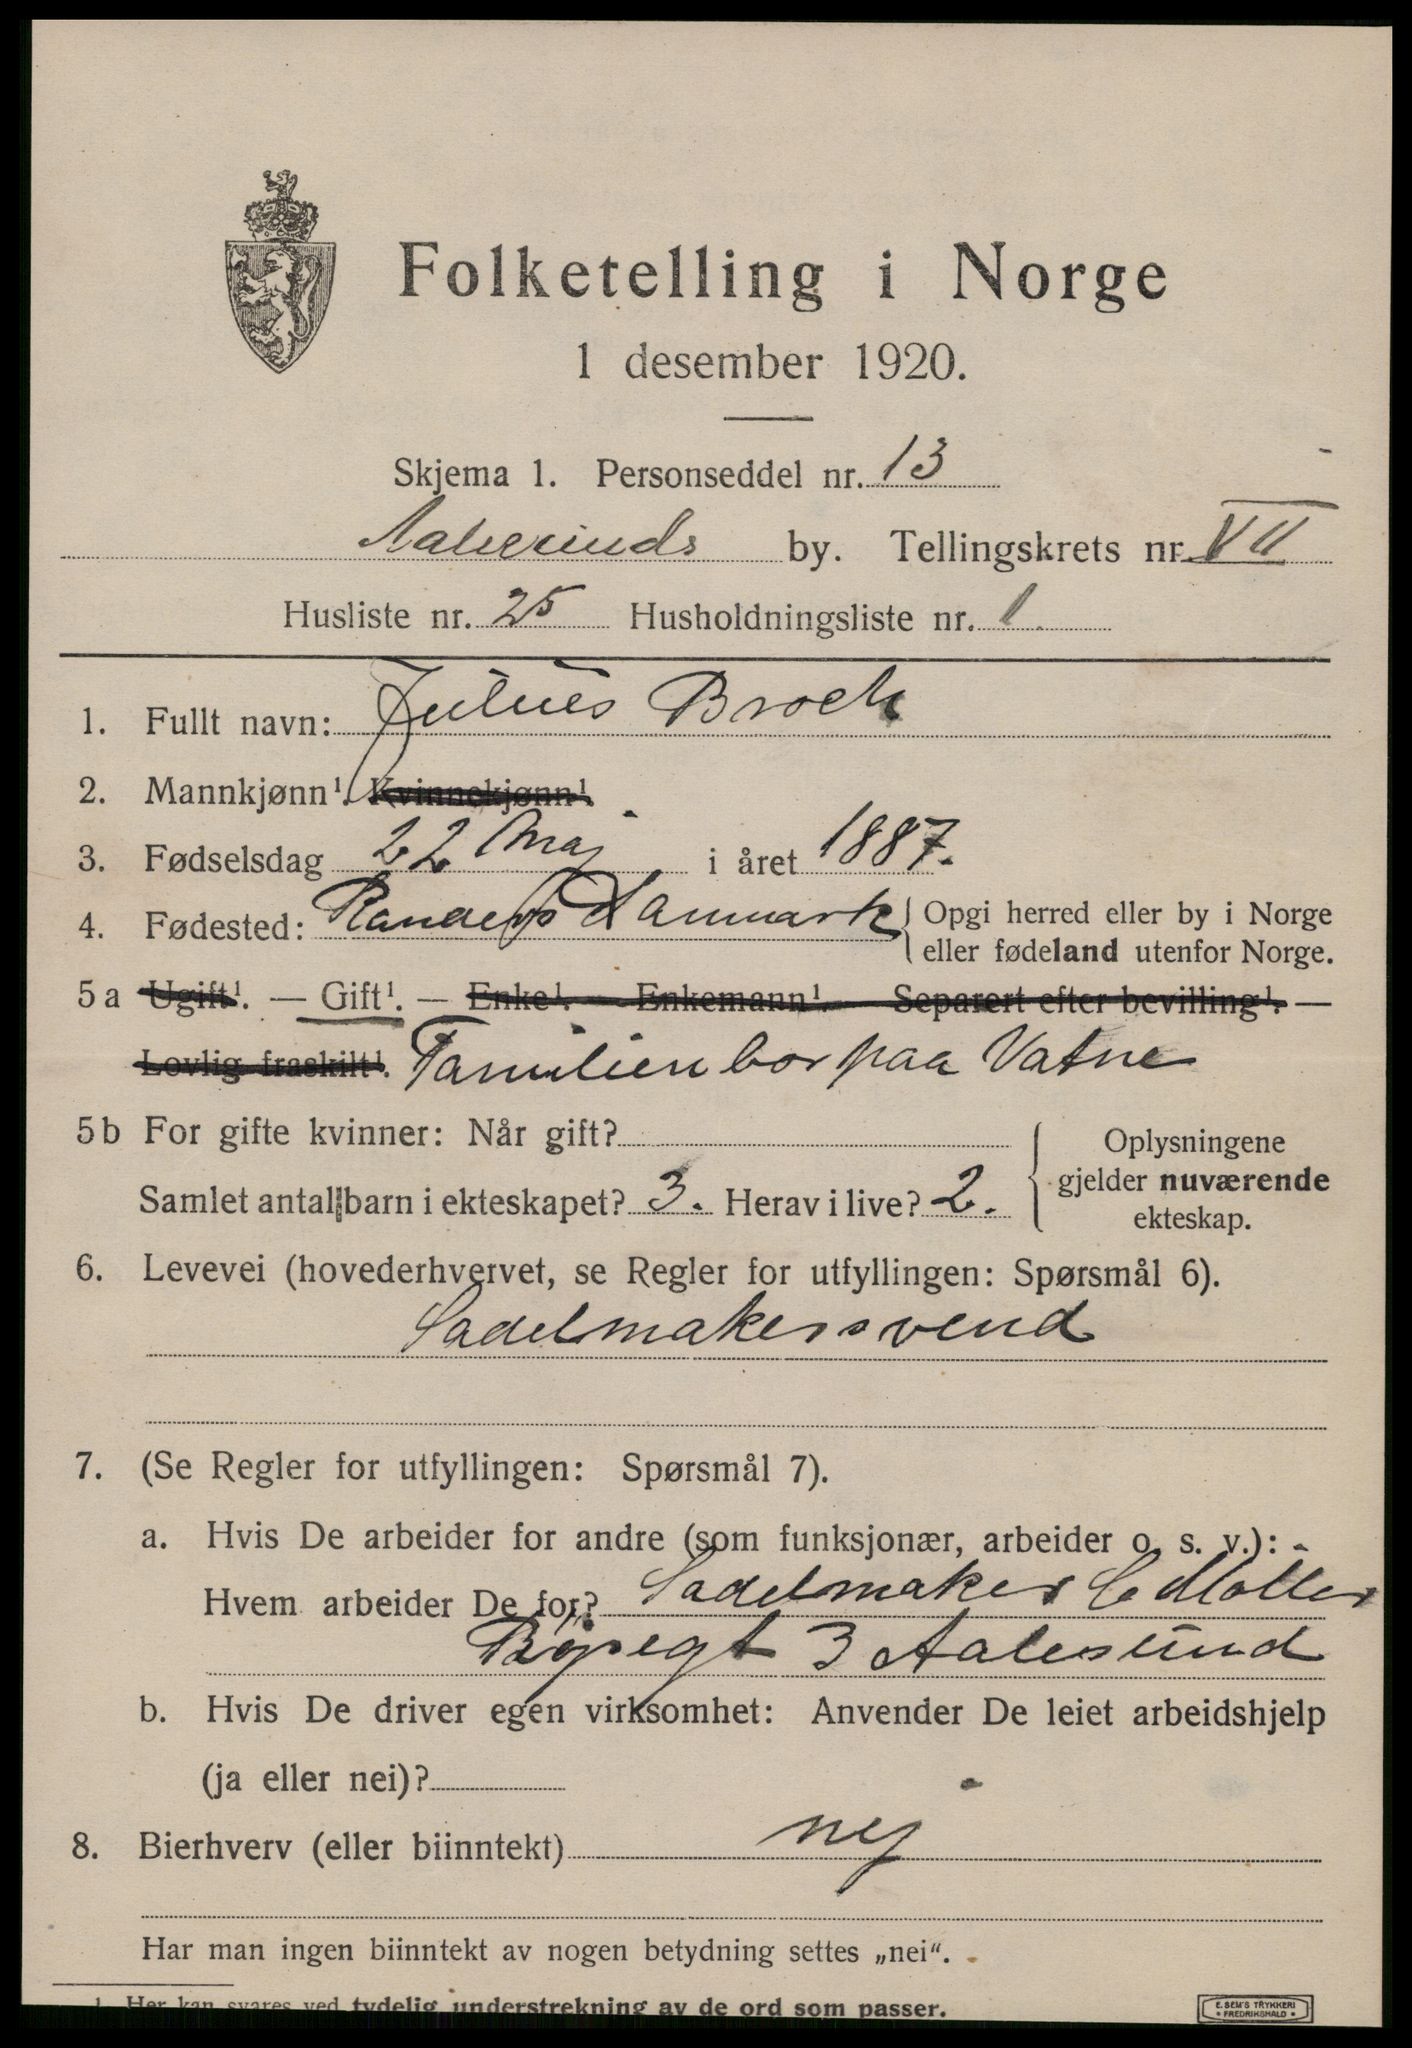 Folketelling i Norge
1 desember 1920.
Skjema 1. Personseddel nr. 13
Aalesunds by. Tellingskrets nr. VII
Husliste nr. 25 Husholdningsliste nr. 1.
1. Fullt navn: Julius Broch
2. Mannkjønn¹. Kvinnekjønn¹.
3. Fødselsdag 22 Maj i året 1887.
4. Fødested: Randers Danmark { Opgi herred eller by i Norge
eller fødeland utenfor Norge.
5a Ugift¹. — Gift¹. — Enke¹. — Enkemann¹. — Separert efter bevilling¹. —
Lovlig fraskilt¹. Familien bor paa Vatne
5b For gifte kvinner: Når gift?
Samlet antall barn i ekteskapet? 3. Herav i live? 2.
Oplysningene
gjelder nuværende
ekteskap.
6. Levevei (hovederhvervet, se Regler for utfyllingen: Spørsmål 6).
Sadelmakersvend
7. (Se Regler for utfyllingen: Spørsmål 7).
a. Hvis De arbeider for andre (som funksjonær, arbeider o. s. v.):
Hvem arbeider De for? Sadelmaker C Møller
3 Aalesund
b. Hvis De driver egen virksomhet: Anvender De leiet arbeidshjelp
(ja eller nei)?
8. Bierhverv (eller biinntekt) nej
Har man ingen biinntekt av nogen betydning settes „nei“.
1. Her kan svares ved tydelig understrekning av de ord som passer.
E. SEM'S TRYKKERI
• FREDRIKSHALD •